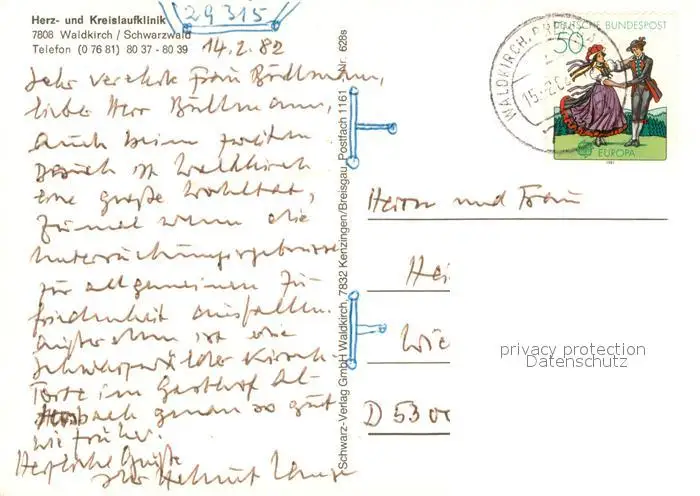 29315
Herz- und Kreislaufklinik
7808 Waldkirch / Schwarzwald
Telefon (0 76 81) 80 37 - 80 39
14.2.82
Sehr verehrte Frau
liebe Herr
auch beim zweiten
Besuch ist Waldkirch
eine große Wohltat,
zumal wenn die
Untersuchungsergebnisse
zur allgemeinen Zu-
friedenheit ausfallen.
Außerdem ist die
Schwarzwälder Kirsch-
Torte im Gasthof
genau so gut
wie früher.
Herzliche Grüße
Ihr Helmut
Schwarz-Verlag GmbH Waldkirch, 7832 Kenzingen/Breisgau, Postfach 1161 Nr. 628s
DEUTSCHE BUNDESPOST
50
EUROPA
1981
WALDKIRCH, BREISGAU
Herrn und Frau
Hei
Wie
D 5300
privacy protection
Datenschutz